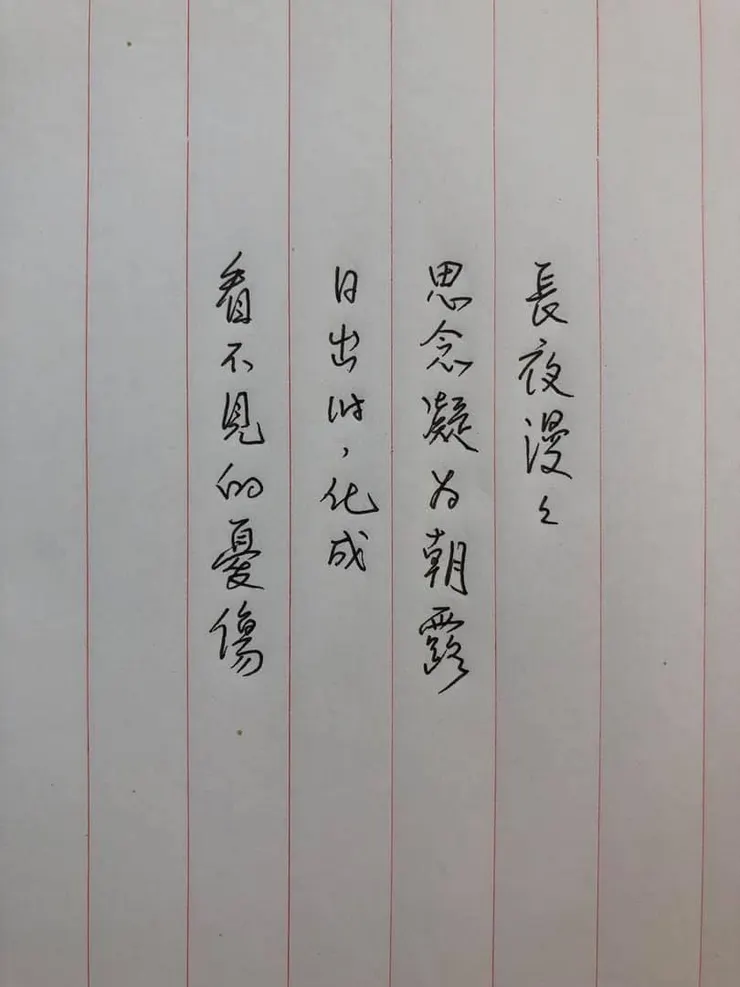 長夜漫々
思念凝为朝露
日出时，化成
看不見的憂傷